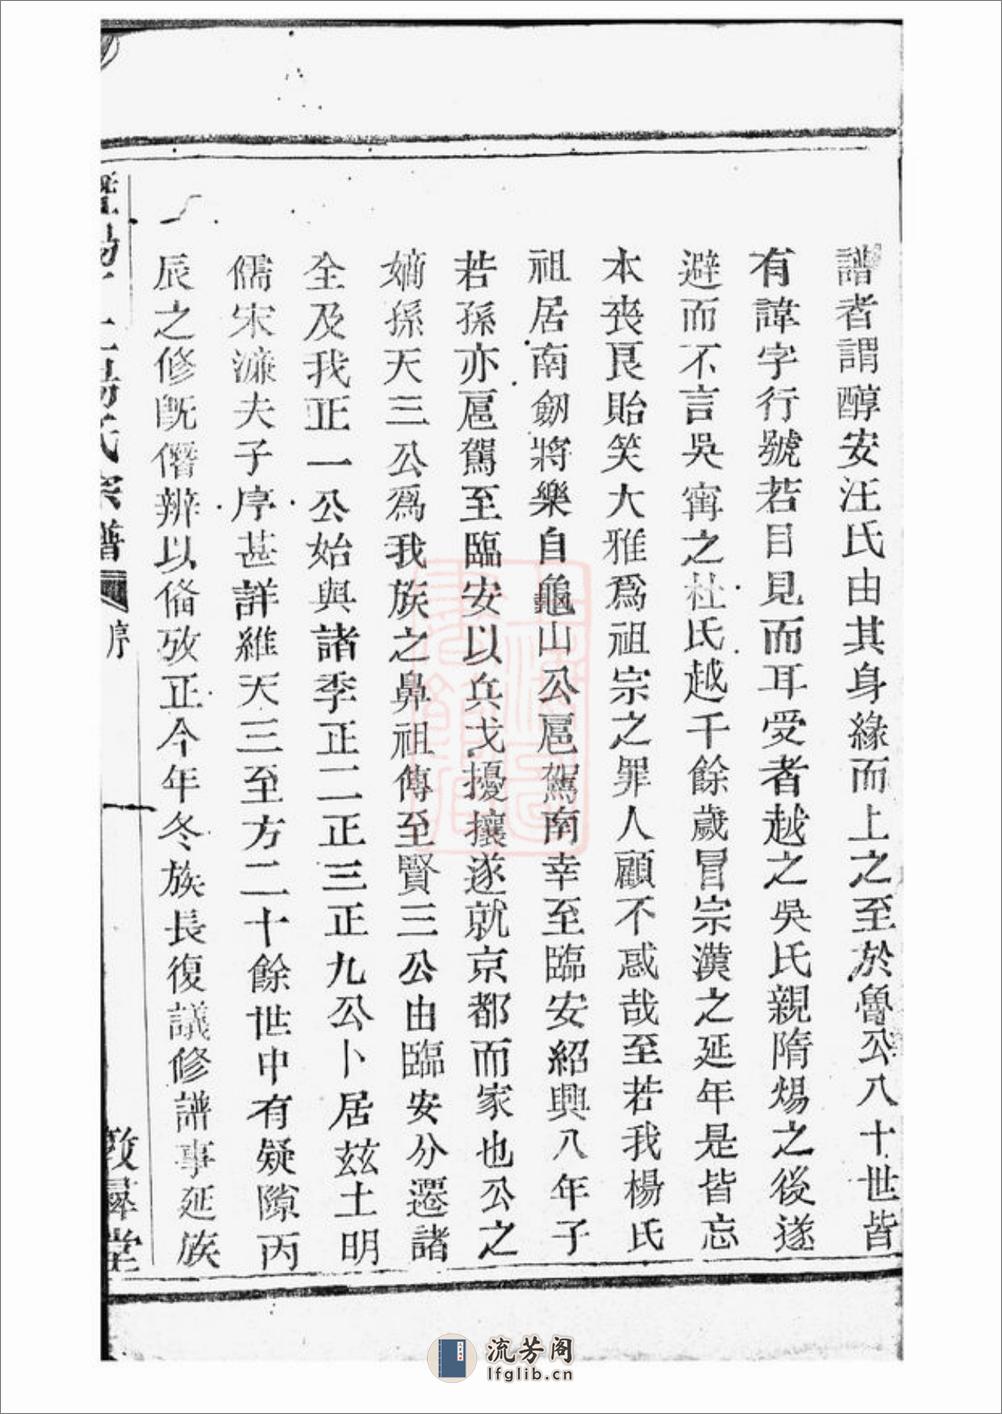 譜者謂醇安汪氏由其身緣而上之至於魯公八十世皆
有諱字行號若目見而耳受者越之吳氏親隋煬之後遂
避而不言吳甯之杜氏越千餘歲冒宗漢之延年是皆忘
本喪良貽笑大雅爲祖宗之罪人顧不惑哉至若我楊氏
祖居南劒將樂自龜山公扈駕南幸至臨安紹興八年子
若孫亦扈駕至臨安以兵戈擾攘遂就京都而家也公之
嫡孫天三公爲我族之鼻祖傳至賢三公由臨安分遷諸
全及我正一公始與諸季正二正三正九公卜居茲土明
儒宋濂夫子序甚詳維天三至方二十餘世中有疑隙丙
辰之修旣僭辨以俻攷正今年冬族長復議修譜事延族
楊氏宗譜
序
一
堂
流芳阁
lfglib.cn